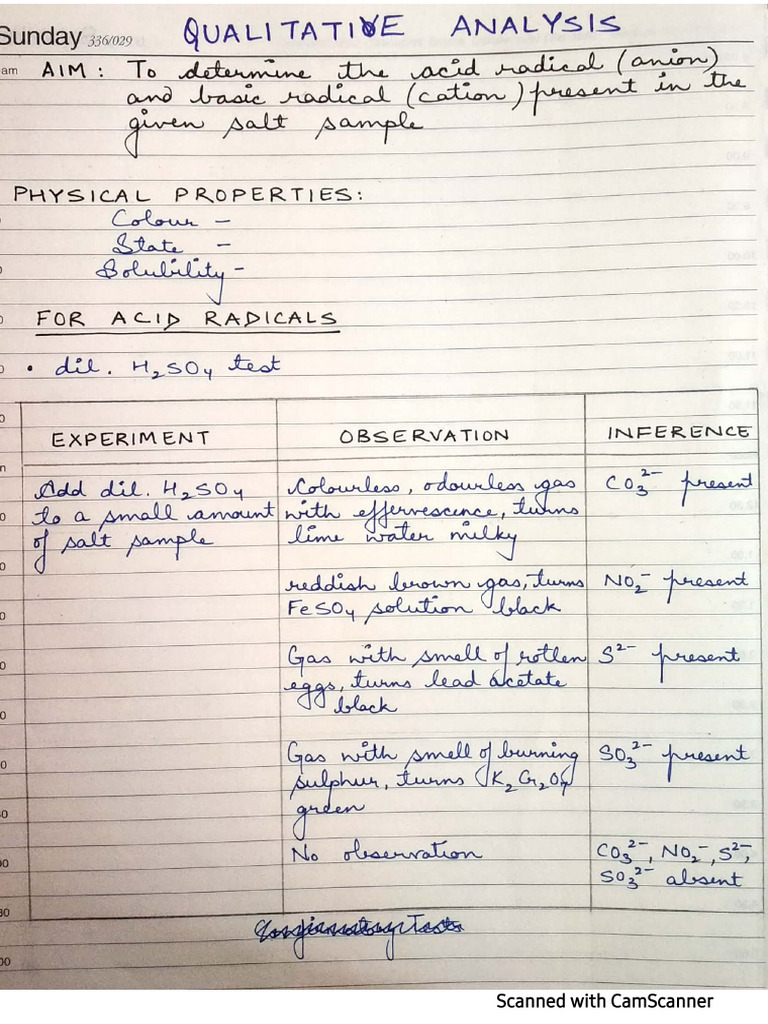 Sunday 336/029
QUALITATIVE ANALYSIS
am
AIM : To determine the acid radical (anion)
and basic radical (cation) present in the
given salt sample
PHYSICAL PROPERTIES:
Colour -
State -
Solubility -
FOR ACID RADICALS
• dil. H₂SO₄ test
EXPERIMENT OBSERVATION INFERENCE
Add dil. H₂SO₄
to a small amount
of salt sample
Colourless, odourless gas
with effervescence, turns
lime water milky
CO₃²⁻ present
reddish brown gas, turns
FeSO₄ solution black
NO₂⁻ present
Gas with smell of rotten
eggs, turns lead acetate
black
S²⁻ present
Gas with smell of burning
sulphur, turns K₂Cr₂O₇
green
SO₃²⁻ present
No observation
CO₃²⁻, NO₂⁻, S²⁻,
SO₃²⁻ absent
Confirmatory Tests
Scanned with CamScanner